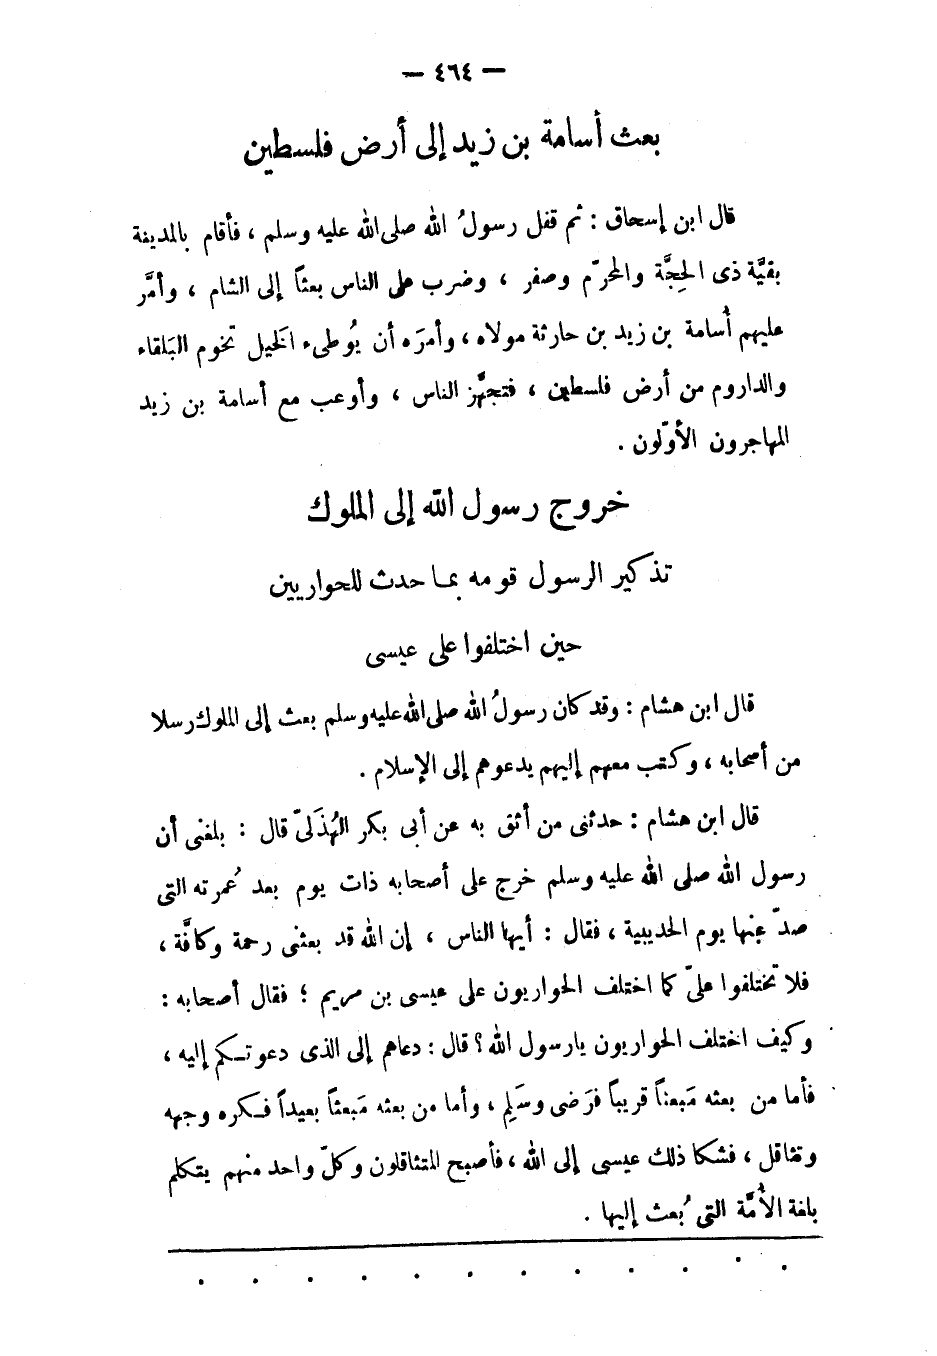 — ٤٦٤ —
بعث أسامة بن زيد إلى أرض فلسطين
قال ابن إسحاق : ثم قفل رسولُ الله صلى الله عليه وسلم ، فأقام بالمدينة
بقيَّة ذى الحِجَّة والمحرّم وصفر ، وضرب على الناس بعثاً إلى الشام ، وأمَّر
عليهم أُسامة بن زيد بن حارثة مولاه ، وأمرَه أن يُوطىء الخيل تخوم البَلقاء
والداروم من أرض فلسطين ، فتجهَّز الناس ، وأوعب مع أسامة بن زيد
المهاجرون الأوّلون .
خروج رسول الله إلى الملوك
تذكير الرسول قومه بما حدث للحواريين
حين اختلفوا على عيسى
قال ابن هشام : وقد كان رسولُ الله صلى الله عليه وسلم بعث إلى الملوك رسلا
من أصحابه ، وكتب معهم إليهم يدعوهم إلى الإسلام .
قال ابن هشام : حدثنى من أثق به عن أبى بكر الهُذَلىّ قال : بلغنى أن
رسول الله صلى الله عليه وسلم خرج على أصحابه ذات يوم بعد عُمرته التى
صدّ عنها يوم الحديبية ، فقال : أيها الناس ، إن الله قد بعثنى رحمة وكافَّة ،
فلا تختلفوا علىّ كما اختلف الحواريون على عيسى بن مريم ؛ فقال أصحابه :
وكيف اختلف الحواريون يارسول الله ؟ قال : دعاهم إلى الذى دعوتكم إليه ،
فأما من بعثه مَبعثاً قريباً فرَضى وسَلِم ، وأما من بعثه مَبعثاً بعيداً فكره وجهه
وتثاقل ، فشكا ذلك عيسى إلى الله ، فأصبح المتثاقلون وكلّ واحد منهم يتكلم
بلغة الأُمَّة التى بُعث إليها .
. . . . . . . . . . . .